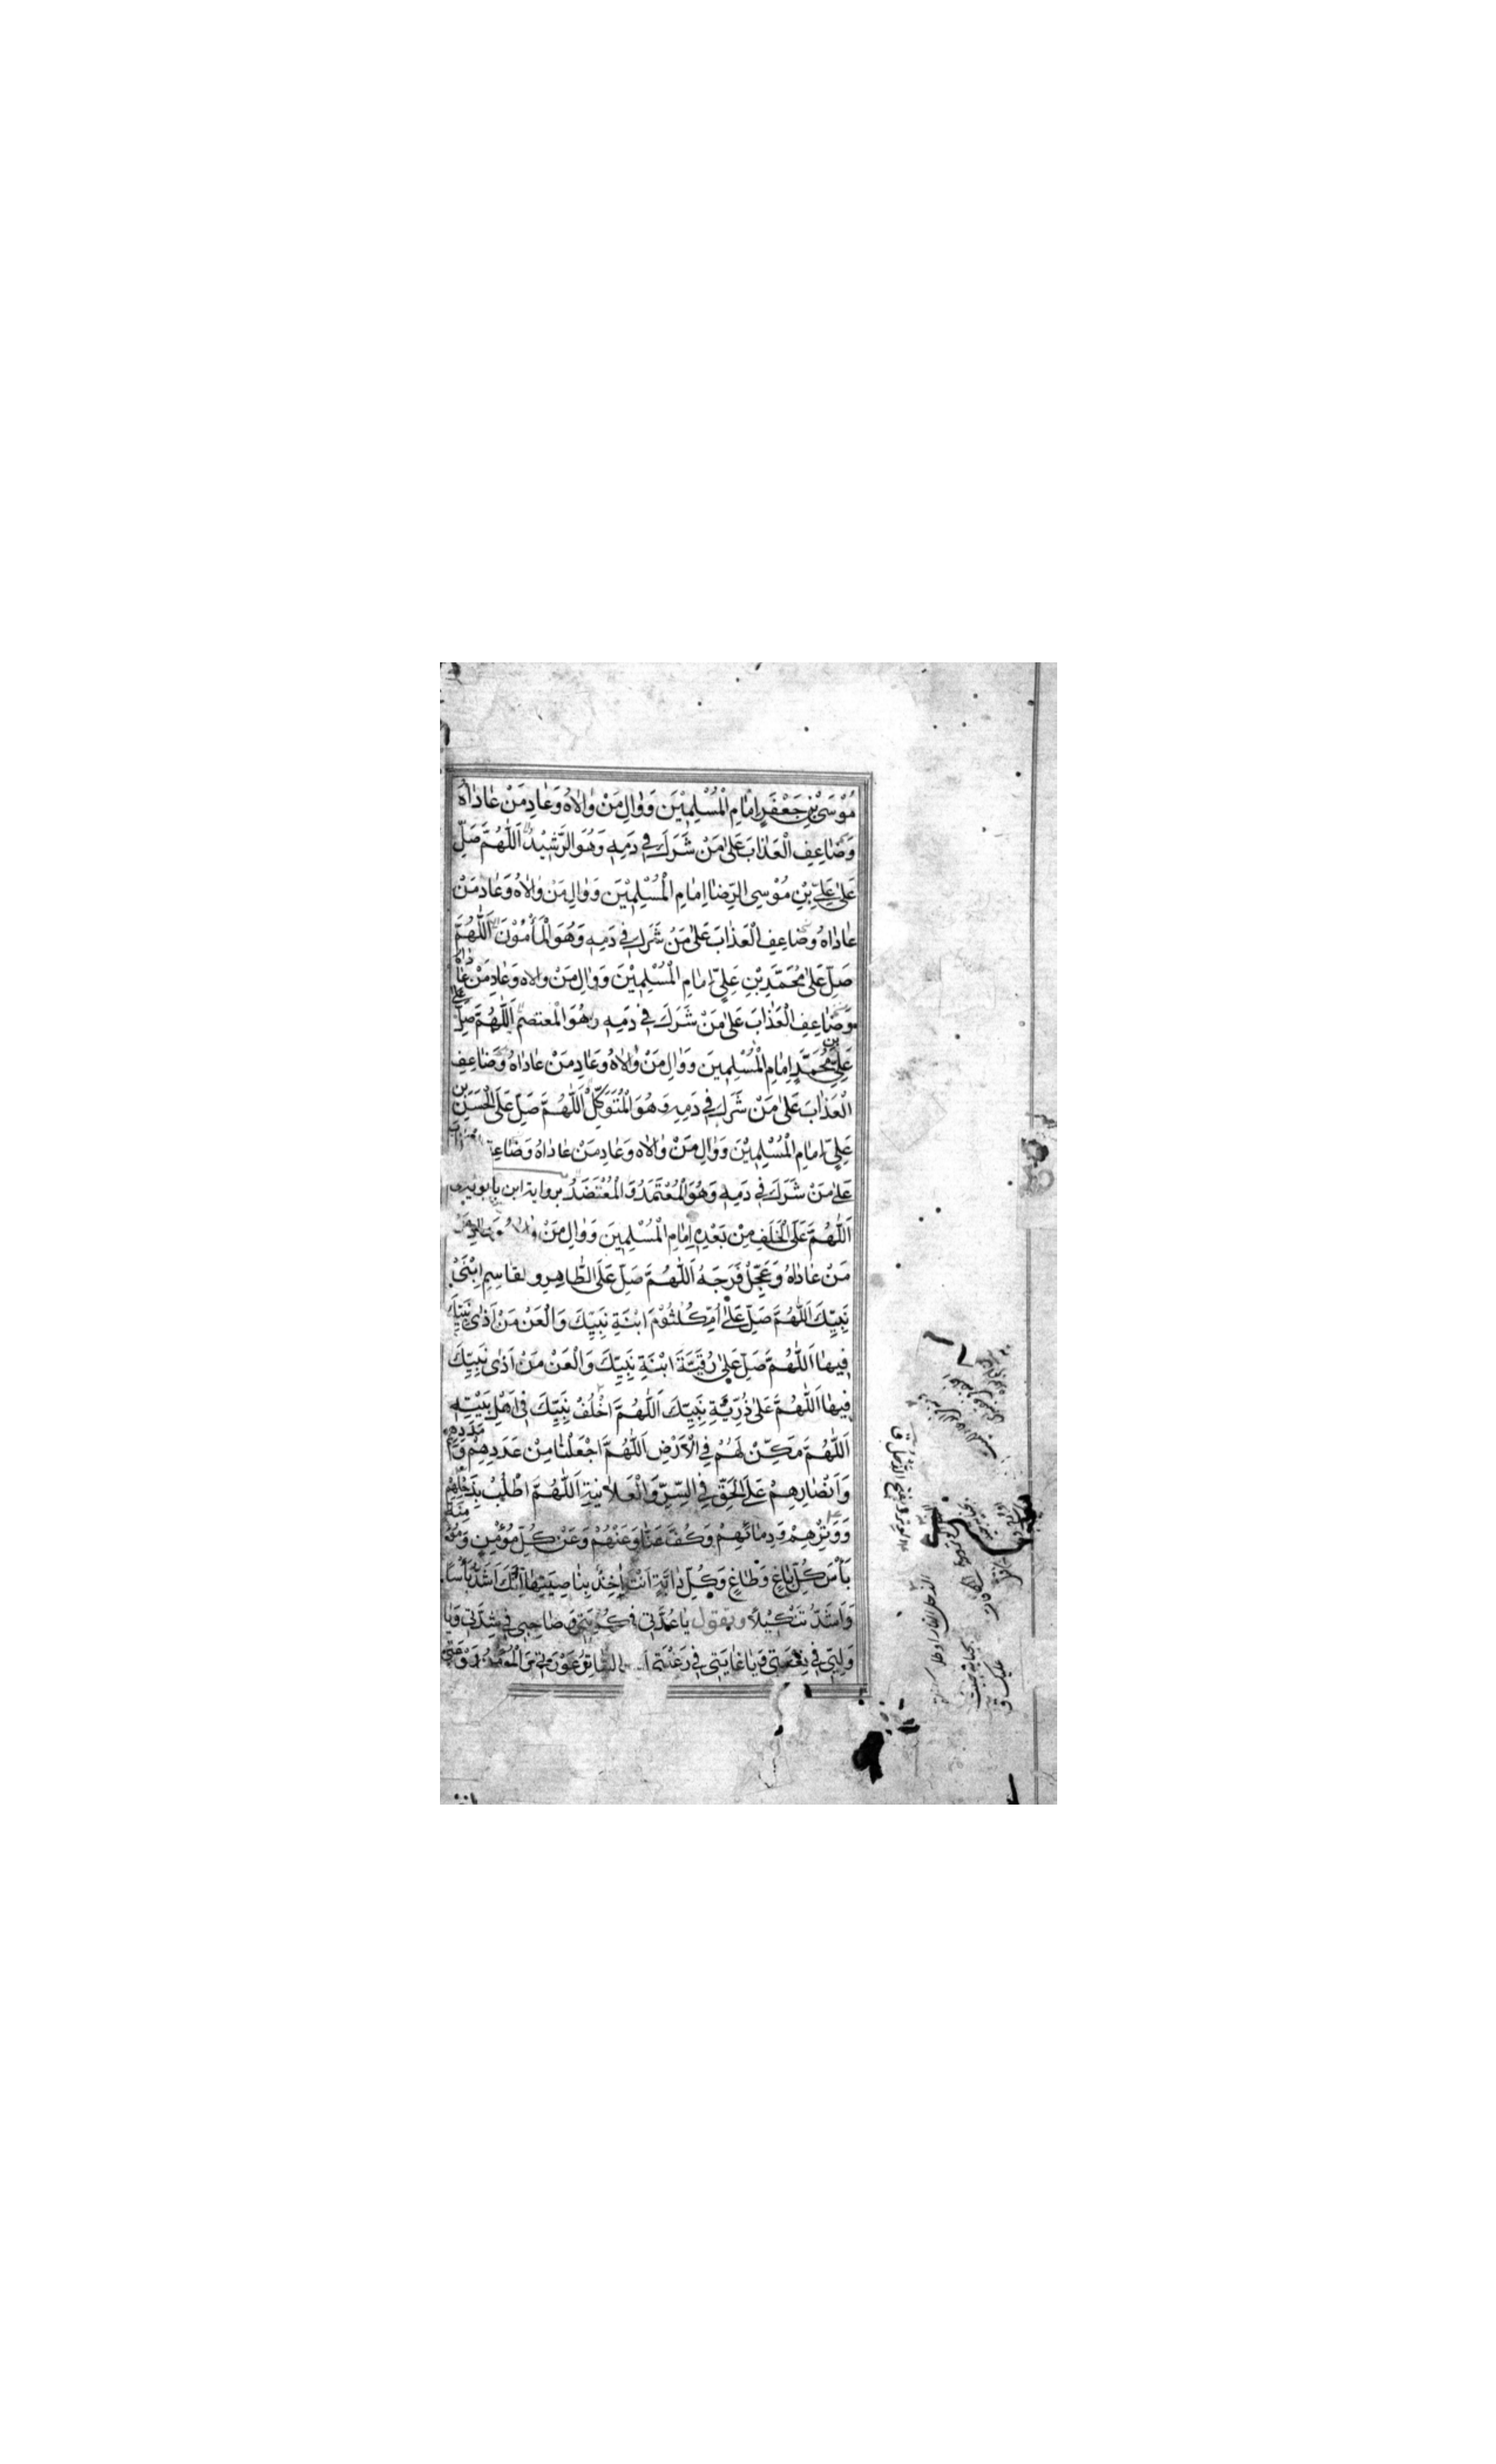 مُوْسَى بْنِ جَعْفَرٍ اِمَامِ الْمُسْلِمِيْنَ وَوَالِ مَنْ وَالَاهُ وَعَادِ مَنْ عَادَاهُ
وَضَاعِفِ الْعَذَابَ عَلٰى مَنْ شَرَكَ فِي دَمِهِ وَهُوَ الرَّشِيْدُ اَللّٰهُمَّ صَلِّ
عَلٰى عَلِيِّ بْنِ مُوْسٰى الرِّضَا اِمَامِ الْمُسْلِمِيْنَ وَوَالِ مَنْ وَالَاهُ وَعَادِ مَنْ
عَادَاهُ وَضَاعِفِ الْعَذَابَ عَلٰى مَنْ شَرَكَ فِي دَمِهِ وَهُوَ الْمَأْمُوْنَ اَللّٰهُمَّ
صَلِّ عَلٰى مُحَمَّدِ بْنِ عَلِيٍّ اِمَامِ الْمُسْلِمِيْنَ وَوَالِ مَنْ والاه وَعَادِ مَنْ عَاداه
وَضَاعِفِ الْعَذَابَ عَلٰى مَنْ شَرَكَ فِي دَمِهِ وهُوَ الْمعتصم اَللّٰهُمَّ صَلِّ على
عَلِيِّ بن مُحَمَّدٍ اِمَامِ الْمُسْلِمِينَ وَوَالِ مَنْ وَالَاهُ وَعَادِ مَنْ عَادَاهُ وَضَاعِفِ
الْعَذَابَ عَلٰى مَنْ شَرَكَ فِي دَمِهِ وَهُوَ الْمُتَوَكِّلُ اَللّٰهُمَّ صَلِّ عَلَى الْحَسَنِ بن
عَلِيٍّ اِمَامِ الْمُسْلِمِيْنَ وَوَالِ مَنْ وَالَاه وَعَادِ مَنْ عَادَاهُ وَضَاعِف العذاب
عَلٰى مَنْ شَرَكَ فِي دَمِهِ وَهُوَ الْمُعْتَمَدُ وَالْمُعْتَضَدُ برواية ابن بابويه
اَللّٰهُمَّ عَلَى الْخَلَفِ مِنْ بَعْدِهِ اِمَامِ الْمُسْلِمِينَ وَوَالِ مَنْ والاه وعاد
مَنْ عَادَاهُ وَعَجِّلْ فَرَجَهُ اَللّٰهُمَّ صَلِّ عَلَى الطَّاهِرِ والقاسِمِ ابْنَيْ
نَبِيِّكَ اَللّٰهُمَّ صَلِّ عَلٰى اُمِّ كُلْثُوْمَ ابْنَةِ نَبِيِّكَ وَالْعَنْ مَنْ اٰذٰى نَبِيَّكَ
فِيهَا اَللّٰهُمَّ صَلِّ عَلٰى رُقَيَّةَ ابْنَةِ نَبِيِّكَ وَالْعَنْ مَنْ اٰذٰى نَبِيَّكَ
فِيهَا اَللّٰهُمَّ عَلٰى ذُرِّيَّةِ نَبِيِّكَ اَللّٰهُمَّ اخْلُفْ نَبِيَّكَ فِي اَهْلِ بَيْتِهِ
اَللّٰهُمَّ مَكِّنْ لَهُمْ فِي الْاَرْضِ اَللّٰهُمَّ اجْعَلْنَا مِنْ عَدَدِهِمْ وَمَدَدِهِمْ
وَاَنْصَارِهِمْ عَلَى الْحَقِّ فِي السِّرِّ وَالْعَلَانِيَةِ اَللّٰهُمَّ اطْلُبْ بِذَحْلِهِمْ
وَوَتْرِهِمْ وَدِمَائِهِمْ وَكُفَّ عَنَّا وَعَنْهُمْ وَعَنْ كُلِّ مُؤْمِنٍ وَمُؤْمِنَةٍ
بَأْسَ كُلِّ بَاغٍ وَطَاغٍ وَكُلِّ دَابَّةٍ اَنْتَ اٰخِذٌ بِنَاصِيَتِهَا اِنَّكَ اَشَدُّ بَأْسًا
وَاَشَدُّ تَنْكِيْلًا ويقول يَا عُدَّتِي فِي كُرْبَتِي وَيَا صَاحِبِي فِي شِدَّتِي وَيَا
وَلِيِّي فِي نِعْمَتِي وَيَا غَايَتِي فِي رَغْبَتِي السَّاتِرُ عَوْرَتِي وَالْمُؤمِنُ رَوْعَتِي